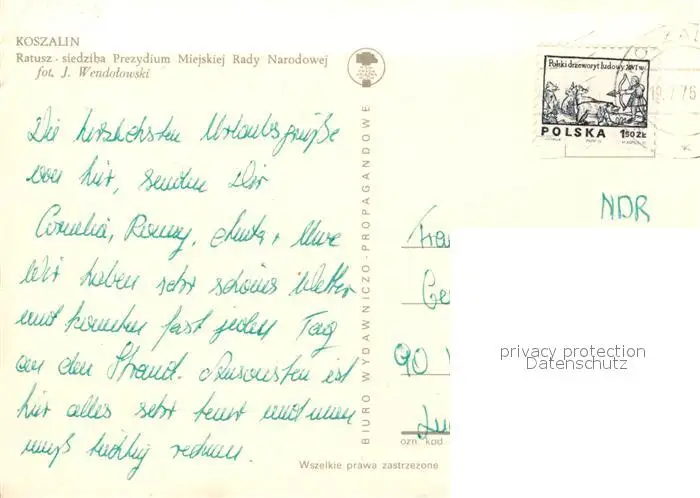 KOSZALIN
Ratusz - siedziba Prezydium Miejskiej Rady Narodowej
fot. J. Wendołowski
Polski drzeworyt ludowy XVI w.
POLSKA 1,50 ZŁ
19. 7. 76
NDR
Die herzlichsten Urlaubsgrüße
von hier, senden Dir
Cornelia, Ronny, Uwe
Wir haben sehr schönes Wetter
und konnten fast jeden Tag
an den Strand. Ansonsten ist
hier alles sehr teuer und man
muß tüchtig rechnen.
BIURO WYDAWNICZO-PROPAGANDOWE
Frau
90
privacy protection
Datenschutz
ozn. kod
Wszelkie prawa zastrzeżone